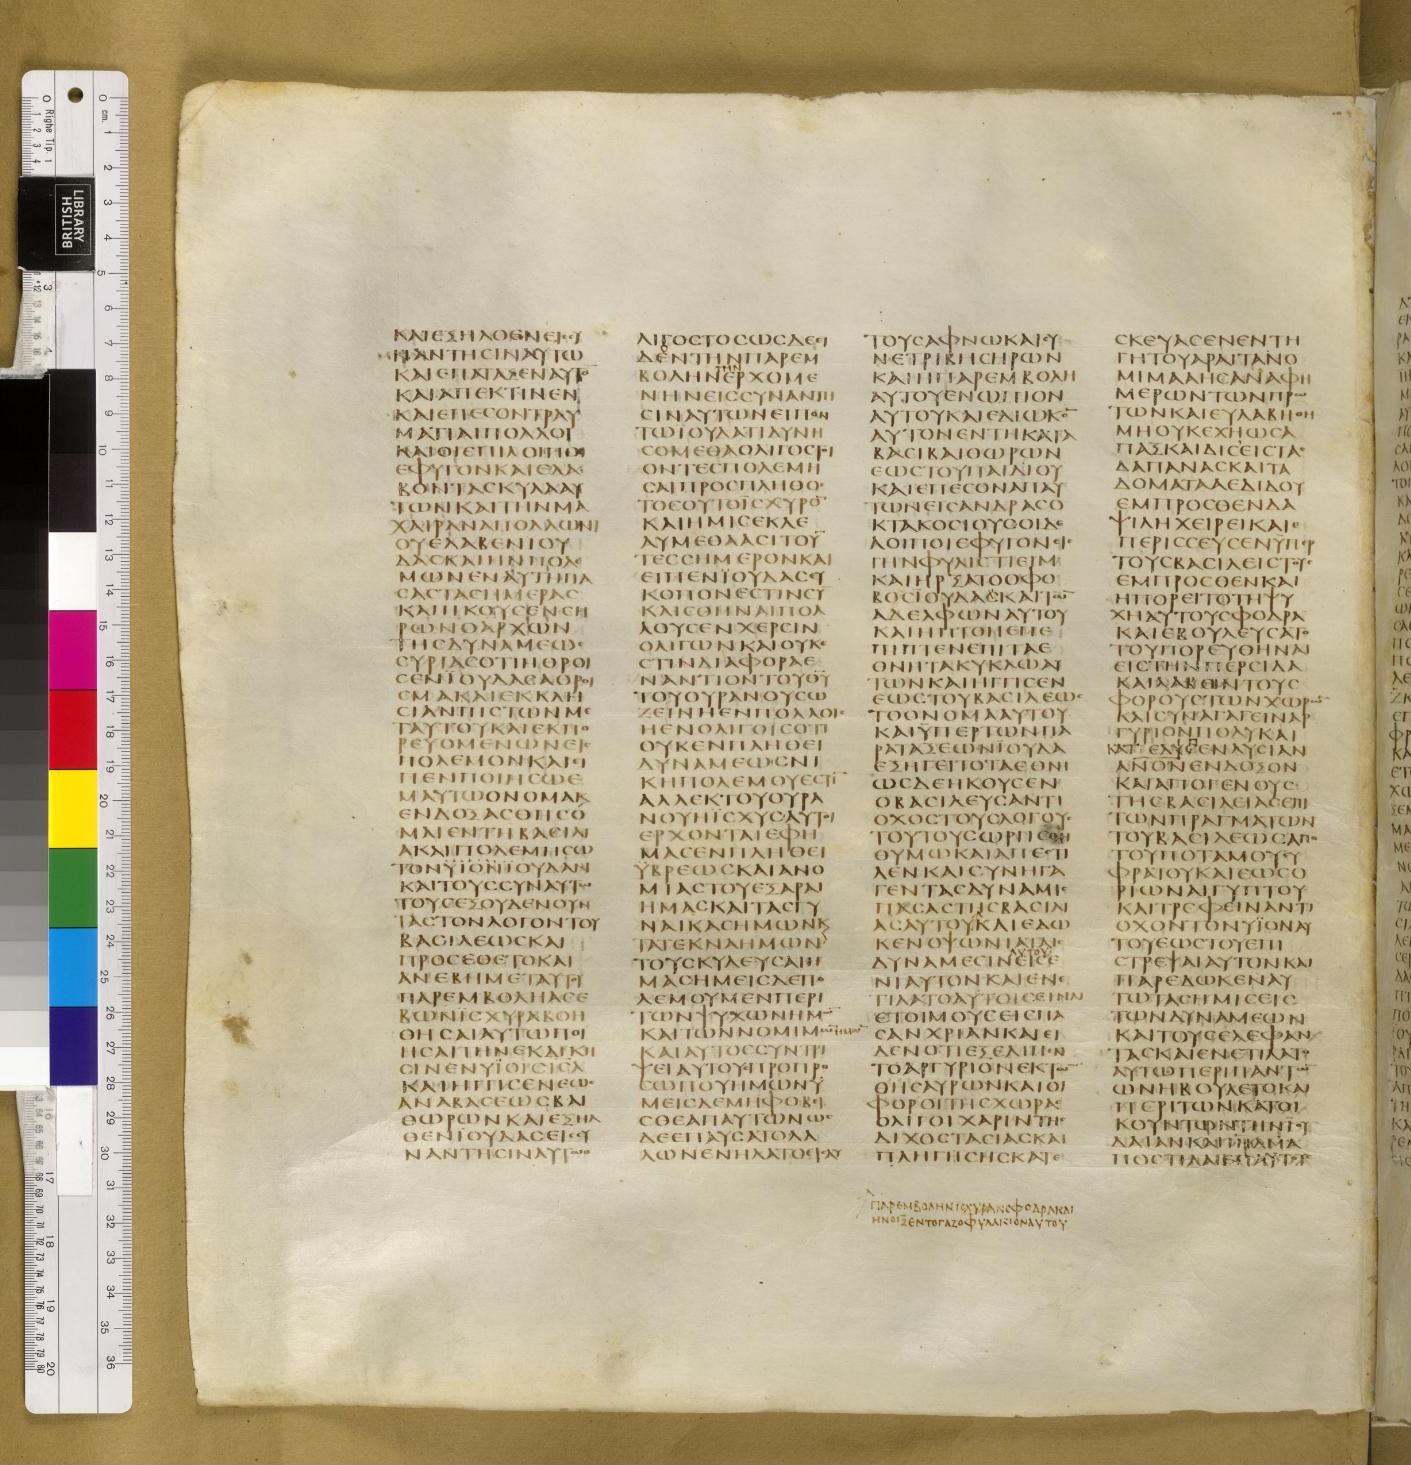 ΚΑΙΕΞΗΛΘΕΝΕΙϹϹΥ
ΝΑΝΤΗϹΙΝΑΥΤΩ
ΚΑΙΕΠΑΤΑΞΕΝΑΥΤΟ
ΚΑΙΑΠΕΚΤΙΝΕΝ
ΚΑΙΕΠΕϹΟΝΤΡΑΥ
ΜΑΤΙΑΙΠΟΛΛΟΙ
ΚΑΙΟΙΕΠΙΛΟΙΠΟΙ
ΕΦΥΓΟΝΚΑΙΕΛΑ
ΒΟΝΤΑϹΚΥΛΑΑΥ
ΤΩΝΚΑΙΤΗΝΜΑ
ΧΑΙΡΑΝΑΠΟΛΛΩΝΙ
ΟΥΕΛΑΒΕΝΙΟΥ
ΔΑϹΚΑΙΗΝΠΟΛΕ
ΜΩΝΕΝΑΥΤΗΠΑ
ϹΑϹΤΑϹΗΜΕΡΑϹ
ΚΑΙΗΚΟΥϹΕΝϹΗ
ΡΩΝΟΑΡΧΩΝ
ΤΗϹΔΥΝΑΜΕΩϹ
ϹΥΡΙΑϹΟΤΙΗΘΡΟΙ
ϹΕΝΪΟΥΔΑϹΑΘΡΟΙ
ϹΜΑΚΑΙΕΚΚΛΗ
ϹΙΑΝΠΙϹΤΩΝΜΕ
ΤΑΥΤΟΥΚΑΙΕΚΠΟ
ΡΕΥΟΜΕΝΩΝΕΙϹ
ΠΟΛΕΜΟΝΚΑΙΕΙ
ΠΕΝΠΟΙΗϹΩΕ
ΜΑΥΤΩΟΝΟΜΑΚΑΙ
ΕΝΔΟΞΑϹΘΗϹΟ
ΜΑΙΕΝΤΗΒΑϹΙΛΙ
ΑΚΑΙΠΟΛΕΜΗϹΩ
ΤΟΝΪΟΥΔΑΝ
ΚΑΙΤΟΥϹϹΥΝΑΥΤΩ
ΤΟΥϹΕΞΟΥΔΕΝΟΥΝ
ΤΑϹΤΟΝΛΟΓΟΝΤΟΥ
ΒΑϹΙΛΕΩϹΚΑΙ
ΠΡΟϹΕΘΕΤΟΚΑΙ
ΑΝΕΒΗΜΕΤΑΥΤΟΥ
ΠΑΡΕΜΒΟΛΗΑϹΕ
ΒΩΝΪϹΧΥΡΑΒΟΗ
ΘΗϹΑΙΑΥΤΩΠΟΙ
ΗϹΑΙΤΗΝΕΚΔΙΚΗ
ϹΙΝΕΝΥΪΟΙϹΙϹΛ
ΚΑΙΗΓΓΙϹΕΝΕΩϹ
ΑΝΑΒΑϹΕΩϹΒΑΙ
ΘΩΡΩΝΚΑΙΕΞΗΛ
ΘΕΝΪΟΥΔΑϹΕΙϹϹΥ
ΝΑΝΤΗϹΙΝΑΥΤΩΟ
ΛΙΓΟϹΤΟϹΩϹΔΕΕΙ
ΔΕΝΤΗΝΠΑΡΕΜ
ΒΟΛΗΝΕΡΧΟΜΕ
ΝΗΝΕΙϹϹΥΝΑΝΤΗ
ϹΙΝΑΥΤΩΝΕΙΠΟΝ
ΤΩΪΟΥΔΑΤΙΔΥΝΗ
ϹΟΜΕΘΑΟΛΙΓΟϹΤΟΙ
ΟΝΤΕϹΠΟΛΕΜΗ
ϹΑΙΠΡΟϹΠΛΗΘΟϹ
ΤΟϹΟΥΤΟΪϹΧΥΡΟ
ΚΑΙΗΜΙϹΕΚΛΕ
ΛΥΜΕΘΑΑϹΙΤΟΥ
ΤΕϹϹΗΜΕΡΟΝΚΑΙ
ΕΙΠΕΝΪΟΥΔΑϹΕΥ
ΚΟΠΟΝΕϹΤΙΝϹΥ
ΚΛΙϹΘΗΝΑΙΠΟΛ
ΛΟΥϹΕΝΧΕΡϹΙΝ
ΟΛΙΓΩΝΚΑΙΟΥΚΕ
ϹΤΙΝΔΙΑΦΟΡΑΕ
ΝΑΝΤΙΟΝΤΟΥΘΥ
ΤΟΥΟΥΡΑΝΟΥϹΩ
ΖΕΙΝΗΕΝΠΟΛΛΟΙϹ
ΗΕΝΟΛΙΓΟΙϹΟΤΙ
ΟΥΚΕΝΠΛΗΘΕΙ
ΔΥΝΑΜΕΩϹΝΙ
ΚΗΠΟΛΕΜΟΥΕϹΤΙ
ΑΛΛΕΚΤΟΥΟΥΡΑ
ΝΟΥΗΪϹΧΥϹΑΥΤΟΙ
ΕΡΧΟΝΤΑΙΕΦΗ
ΜΑϹΕΝΠΛΗΘΕΙ
ΥΒΡΕΩϹΚΑΙΑΝΟ
ΜΙΑϹΤΟΥΕΞΑΡΑΙ
ΗΜΑϹΚΑΙΤΑϹΓΥ
ΝΑΙΚΑϹΗΜΩΝΚ
ΤΑΤΕΚΝΑΗΜΩΝ
ΤΟΥϹΚΥΛΕΥϹΑΙΗ
ΜΑϹΗΜΕΙϹΔΕΠΟ
ΛΕΜΟΥΜΕΝΠΕΡΙ
ΤΩΝΨΥΧΩΝΗΜΩ
ΚΑΙΤΩΝΝΟΜΙΜΩΝΗΜΩ
ΚΑΙΑΥΤΟϹϹΥΝΤΡΙ
ΨΕΙΑΥΤΟΥϹΠΡΟΠΡΟ
ϹΩΠΟΥΗΜΩΝΥ
ΜΕΙϹΔΕΜΗΦΟΒΙ
ϹΘΕΑΠΑΥΤΩΝΩϹ
ΔΕΕΠΑΥϹΑΤΟΛΑ
ΛΩΝΕΝΗΛΛΑΤΟΕΙϹΑΥ
ΤΟΥϹΑΦΝΩΚΑΙϹΥ
ΝΕΤΡΙΒΗϹΗΡΩΝ
ΚΑΙΗΠΑΡΕΜΒΟΛΗ
ΑΥΤΟΥΕΝΩΠΙΟΝ
ΑΥΤΟΥΚΑΙΕΔΙΩΚΟ
ΑΥΤΟΝΕΝΤΗΚΑΤΑ
ΒΑϹΙΒΑΙΘΩΡΩΝ
ΕΩϹΤΟΥΠΑΙΔΙΟΥ
ΚΑΙΕΠΕϹΟΝΑΠΑΥ
ΤΩΝΕΙϹΑΝΔΡΑϹΟ
ΚΤΑΚΟϹΙΟΥϹΟΙΔΕ
ΛΟΙΠΟΙΕΦΥΓΟΝΕΙϹ
ΓΗΝΦΥΛΙϹΤΙΕΙΜ
ΚΑΙΗΡΞΑΤΟΟΦΟ
ΒΟϹΙΟΥΔΑϹΚΑΙΤΩ
ΑΔΕΛΦΩΝΑΥΤΟΥ
ΚΑΙΗΠΤΟΗΕΠΕ
ΠΙΠΤΕΝΕΠΙΤΑΕ
ΘΝΗΤΑΚΥΚΛΩΑΥ
ΤΩΝΚΑΙΗΓΓΙϹΕΝ
ΕΩϹΤΟΥΒΑϹΙΛΕΩϹ
ΤΟΟΝΟΜΑΑΥΤΟΥ
ΚΑΙΫΠΕΡΤΩΝΠΑ
ΡΑΤΑΞΕΩΝΪΟΥΔΑ
ΕΞΗΓΕΙΤΟΤΑΕΘΝΗ
ΩϹΔΕΗΚΟΥϹΕΝ
ΟΒΑϹΙΛΕΥϹΑΝΤΙ
ΟΧΟϹΤΟΥϹΛΟΓΟΥϹ
ΤΟΥΤΟΥϹΩΡΓΙϹΘΗ
ΘΥΜΩΚΑΙΑΠΕϹΤΙ
ΛΕΝΚΑΙϹΥΝΗΓΑ
ΓΕΝΤΑϹΔΥΝΑΜΙϹ
ΠΑϹΑϹΤΗϹΒΑϹΙΛΙ
ΑϹΑΥΤΟΥΚΑΙΕΔΩ
ΚΕΝΟΨΩΝΙΑΤΑΙϹ
ΔΥΝΑΜΕϹΙΝΕΙϹΕ
ΝΙΑΥΤΟΝΚΑΙΕΝΕ
ΤΙΛΑΤΟΑΥΤΟΙϹΕΙΝΑΙ
ΕΤΟΙΜΟΥϹΕΙϹΠΑ
ϹΑΝΧΡΙΑΝΚΑΙΕΙ
ΔΕΝΟΤΙΕΞΕΛΙΠΕΝ
ΤΟΑΡΓΥΡΙΟΝΕΚΤΩ
ΘΗϹΑΥΡΩΝΚΑΙΟΙ
ΦΟΡΟΙΤΗϹΧΩΡΑϹ
ΟΛΙΓΟΙΧΑΡΙΝΤΗϹ
ΔΙΧΟϹΤΑϹΙΑϹΚΑΙ
ΠΛΗΓΗϹΗϹΚΑΤΕ
ΠΑΡΕΜΒΟΛΗΝΙϹΧΥΡΑΝϹΦΟΔΡΑΚΑΙ
ΗΝΟΙΞΕΝΤΟΓΑΖΟΦΥΛΑΚΙΟΝΑΥΤΟΥ
ϹΚΕΥΑϹΕΝΕΝΤΗ
ΓΗΤΟΥΑΡΑΙΤΑΝΟ
ΜΙΜΑΑΗϹΑΝΑΦΗ
ΜΕΡΩΝΤΩΝΠΡΩ
ΤΩΝΚΑΙΕΥΛΑΒΗΘΗ
ΜΗΟΥΚΕΧΗΩϹΑ
ΠΑΞΚΑΙΔΙϹΕΙϹΤΑϹ
ΔΑΠΑΝΑϹΚΑΙΤΑ
ΔΟΜΑΤΑΑΕΔΙΔΟΥ
ΕΜΠΡΟϹΘΕΝΔΑ
ΨΙΛΗΧΕΙΡΕΙΚΑΙΕ
ΠΕΡΙϹϹΕΥϹΕΝΫΠΕΡ
ΤΟΥϹΒΑϹΙΛΕΙϹΤΟΥϹ
ΕΜΠΡΟϹΘΕΝΚΑΙ
ΗΠΟΡΕΙΤΟΤΗΨΥ
ΧΗΑΥΤΟΥϹΦΟΔΡΑ
ΚΑΙΕΒΟΥΛΕΥϹΑΤΟ
ΤΟΥΠΟΡΕΥΘΗΝΑΙ
ΕΙϹΤΗΝΠΕΡϹΙΔΑ
ΚΑΙΛΑΒΕΙΝΤΟΥϹ
ΦΟΡΟΥϹΤΩΝΧΩΡΩ
ΚΑΙϹΥΝΑΓΑΓΕΙΝΑΡ
ΓΥΡΙΟΝΠΟΛΥΚΑΙ
ΚΑΤΕΛΙΠΕΝΛΥϹΙΑΝ
ΑΝΟΝΕΝΔΟΞΟΝ
ΚΑΙΑΠΟΓΕΝΟΥϹ
ΤΗϹΒΑϹΙΛΕΙΑϹΕΠΙ
ΤΩΝΠΡΑΓΜΑΤΩΝ
ΤΟΥΒΑϹΙΛΕΩϹΑΠΟ
ΤΟΥΠΟΤΑΜΟΥΕΥ
ΦΡΑΤΟΥΚΑΙΕΩϹΟ
ΡΙΩΝΑΙΓΥΠΤΟΥ
ΚΑΙΤΡΕΦΕΙΝΑΝΤΙ
ΟΧΟΝΤΟΝΥΪΟΝΑΥ
ΤΟΥΕΩϹΤΟΥΕΠΙ
ϹΤΡΕΨΑΙΑΥΤΟΝΚΑΙ
ΠΑΡΕΔΩΚΕΝΑΥ
ΤΩΤΑϹΗΜΙϹΕΙϹ
ΤΩΝΔΥΝΑΜΕΩΝ
ΚΑΙΤΟΥϹΕΛΕΦΑΝ
ΤΑϹΚΑΙΕΝΕΤΙΛΑΤΟ
ΑΥΤΩΠΕΡΙΠΑΝΤΩ
ΩΝΗΒΟΥΛΕΤΟΚΑΙ
ΠΕΡΙΤΩΝΚΑΤΟΙ
ΚΟΥΝΤΩΝΤΗΝΪΟΥ
ΔΑΙΑΝΚΑΙΪΛΗΜΑ
ΠΟϹΤΙΛΑΙΕΠΑΥΤΟΥϹ